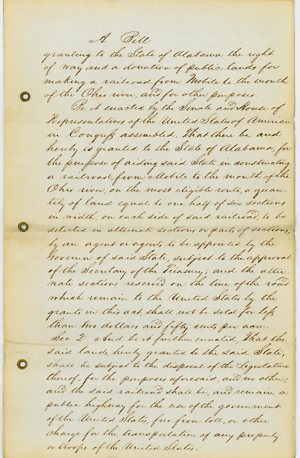 A Bill
granting to the State of Alabama the right
of way and a donation of public lands for
making a railroad from Mobile to the mouth
of the Ohio river, and for other purposes.
Be it enacted by the Senate and House of
Representatives of the United States of America
in Congress assembled, That there be and
hereby is granted to the State of Alabama, for
the purpose of aiding said State in constructing
a railroad from Mobile to the mouth of the
Ohio river, on the most eligible route, a quan-
tity of land equal to one half of six sections
in width, on each side of said railroad, to be
selected in alternate sections or parts of sections,
by an agent or agents to be appointed by the
Governor of said State, subject to the approval
of the Secretary of the Treasury; and the alter-
nate sections reserved on the line of the road
which remain to the United States by the
grants in this act, shall not be sold for less
than two dollars and fifty cents per acre.
Sec 2 And be it further enacted, That the
said lands, hereby granted to the said State,
shall be subject to the disposal of the Legislature
thereof, for the purposes aforesaid, and no other;
and the said railroad shall be, and remain a
public highway for the use of the government
of the United States, free from toll, or other
charge for the transportation of any property
or troops of the United States.